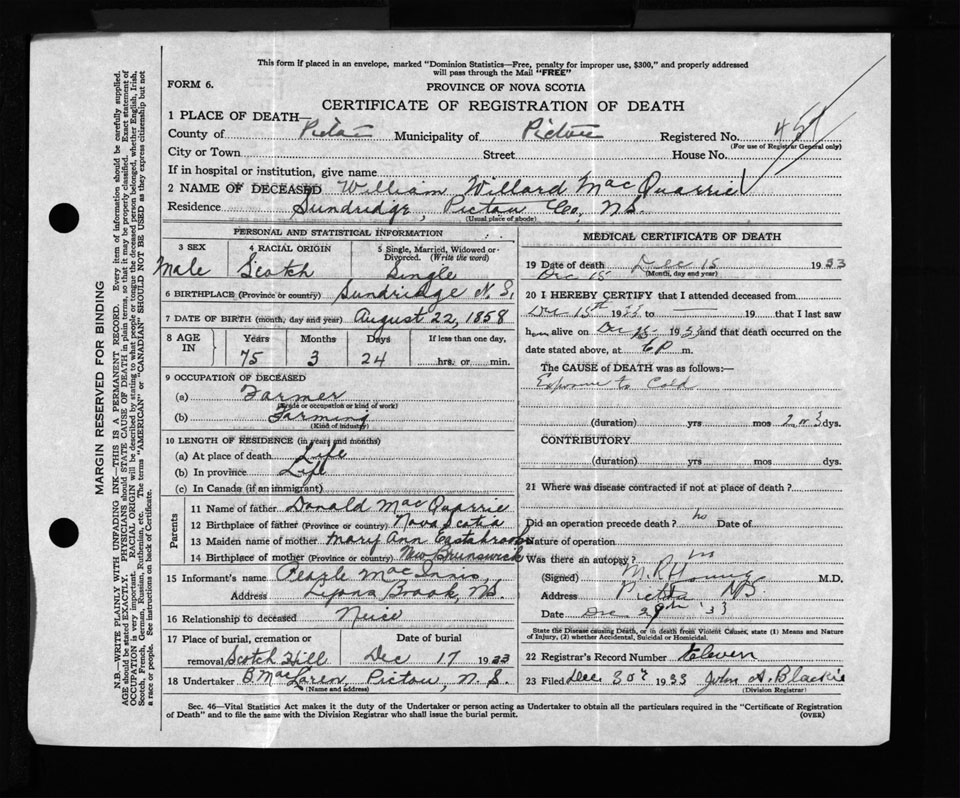 This form if placed in an envelope, marked "Dominion Statistics—Free, penalty for improper use, $300," and properly addressed
will pass through the Mail "FREE"
FORM 6.
PROVINCE OF NOVA SCOTIA
CERTIFICATE OF REGISTRATION OF DEATH
1 PLACE OF DEATH—
County of Pictou Municipality of Pictou Registered No.
(For use of Registrar General only)
City or Town Street House No.
If in hospital or institution, give name
2 NAME OF DECEASED William Willard MacQuarrie
Residence Sundridge, Pictou Co, N.S.
(Usual place of abode)
PERSONAL AND STATISTICAL INFORMATION
3 SEX 4 RACIAL ORIGIN 5 Single, Married, Widowed or Divorced. (Write the word)
Male Scotch Single
6 BIRTHPLACE (Province or country) Sundridge N.S.
7 DATE OF BIRTH (month, day and year) August 22, 1858
8 AGE IN Years Months Days If less than one day,
75 3 24 hrs. or min.
9 OCCUPATION OF DECEASED
(a) Farmer
(Trade or occupation or kind of work)
(b) Farming
(Kind of industry)
10 LENGTH OF RESIDENCE (in years and months)
(a) At place of death Life
(b) In province Life
(c) In Canada (if an immigrant)
Parents
11 Name of father Donald MacQuarrie
12 Birthplace of father (Province or country) Nova Scotia
13 Maiden name of mother Mary Ann Eastabrooks
14 Birthplace of mother (Province or country) New Brunswick
15 Informant's name MacInnis
Address Lyons Brook, N.S.
16 Relationship to deceased Neice
17 Place of burial, cremation or removal Scotch Hill Date of burial Dec 17 1933
18 Undertaker B. MacLaren, Pictou, N.S.
(Name and address)
MEDICAL CERTIFICATE OF DEATH
19 Date of death Dec 15 1933
Dec 15 (Month, day and year)
20 I HEREBY CERTIFY that I attended deceased from
Dec 15th 1933 to — 19 that I last saw
him alive on Dec 15 1933 and that death occurred on the
date stated above, at 6 P m.
The CAUSE OF DEATH was as follows:—
Exposure to Cold
(duration) yrs mos 2 or 3 dys.
CONTRIBUTORY
(duration) yrs mos dys.
21 Where was disease contracted if not at place of death?
Did an operation precede death? no Date of
Nature of operation
Was there an autopsy? no
(Signed) M.R. Young M.D.
Address Pictou N.S.
Date Dec '33
State the Disease causing Death, or in death from Violent Causes, state (1) Means and Nature
of Injury, (2) whether Accidental, Suicidal or Homicidal.
22 Registrar's Record Number Eleven
23 Filed Dec 30th 1933 John A. Blackie
(Division Registrar)
Sec. 46—Vital Statistics Act makes it the duty of the Undertaker or person acting as Undertaker to obtain all the particulars required in the "Certificate of Registration
of Death" and to file the same with the Division Registrar who shall issue the burial permit.
(OVER)
MARGIN RESERVED FOR BINDING
N.B.—WRITE PLAINLY WITH UNFADING INK—THIS IS A PERMANENT RECORD. Every item of information should be carefully supplied.
AGE should be stated EXACTLY. PHYSICIANS should STATE CAUSE OF DEATH in plain terms, so that it may be properly classified. Exact statement of
OCCUPATION is very important. RACIAL ORIGIN will be described by stating to what people or tongue the deceased person belonged, whether English, Irish,
Scotch, French, German, Russian, Ruthenian, etc. The terms "AMERICAN" or "CANADIAN" SHOULD NOT BE USED as they express citizenship but not
a race or people. See instructions on back of Certificate.